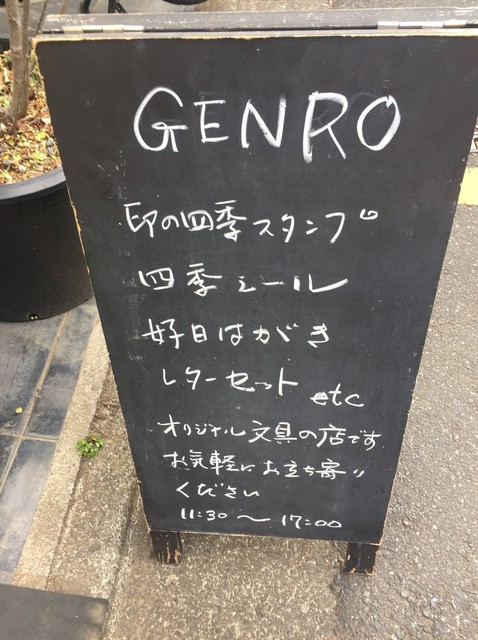 GENRO
印の四季スタンプ
四季シール
好日はがき
レターセット etc
オリジナル文具の店です
お気軽にお立ち寄り
ください
11:30〜17:00